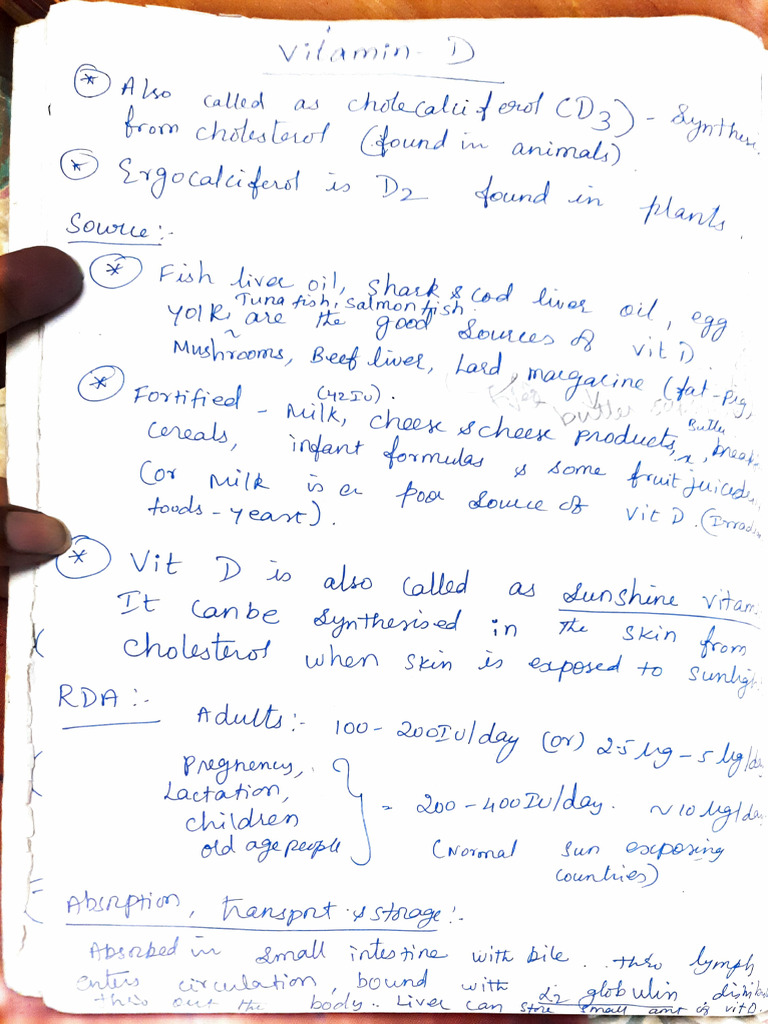 Vitamin - D
* Also called as cholecalciferol (D3) - Synthesi
from cholesterol (found in animals)
* Ergocalciferol is D2 found in plants.
Source:-
* Fish liver oil, shark & cod liver oil, egg
Tuna fish, salmon fish.
yolk are the good sources of vit D
Mushrooms, Beef liver, Lard, margarine (fat - pig,
butter
(42IU).
* Fortified - Milk, cheese & cheese products, Butter, break
cereals, infant formulas & some fruit juices
(or Milk is a poor source of vit D. (Irradi
foods - yeast).
* Vit D is also called as Sunshine vitam
It canbe synthesised in the skin from
cholesterol when skin is exposed to sunligh
RDA:-
Adults:- 100 - 200IU/day (or) 2.5 μg - 5 μg/da
Pregnency,
Lactation,
children
old age people
= 200 - 400IU/day. ~ 10 μg/day
(Normal sun exposing
countries)
Absorption, transport & storage:-
Absorbed in small intestine with bile.. thro lymph
enters circulation, bound with α2 globulin distrib
thro out the body.. Liver can store small amt of vit D.